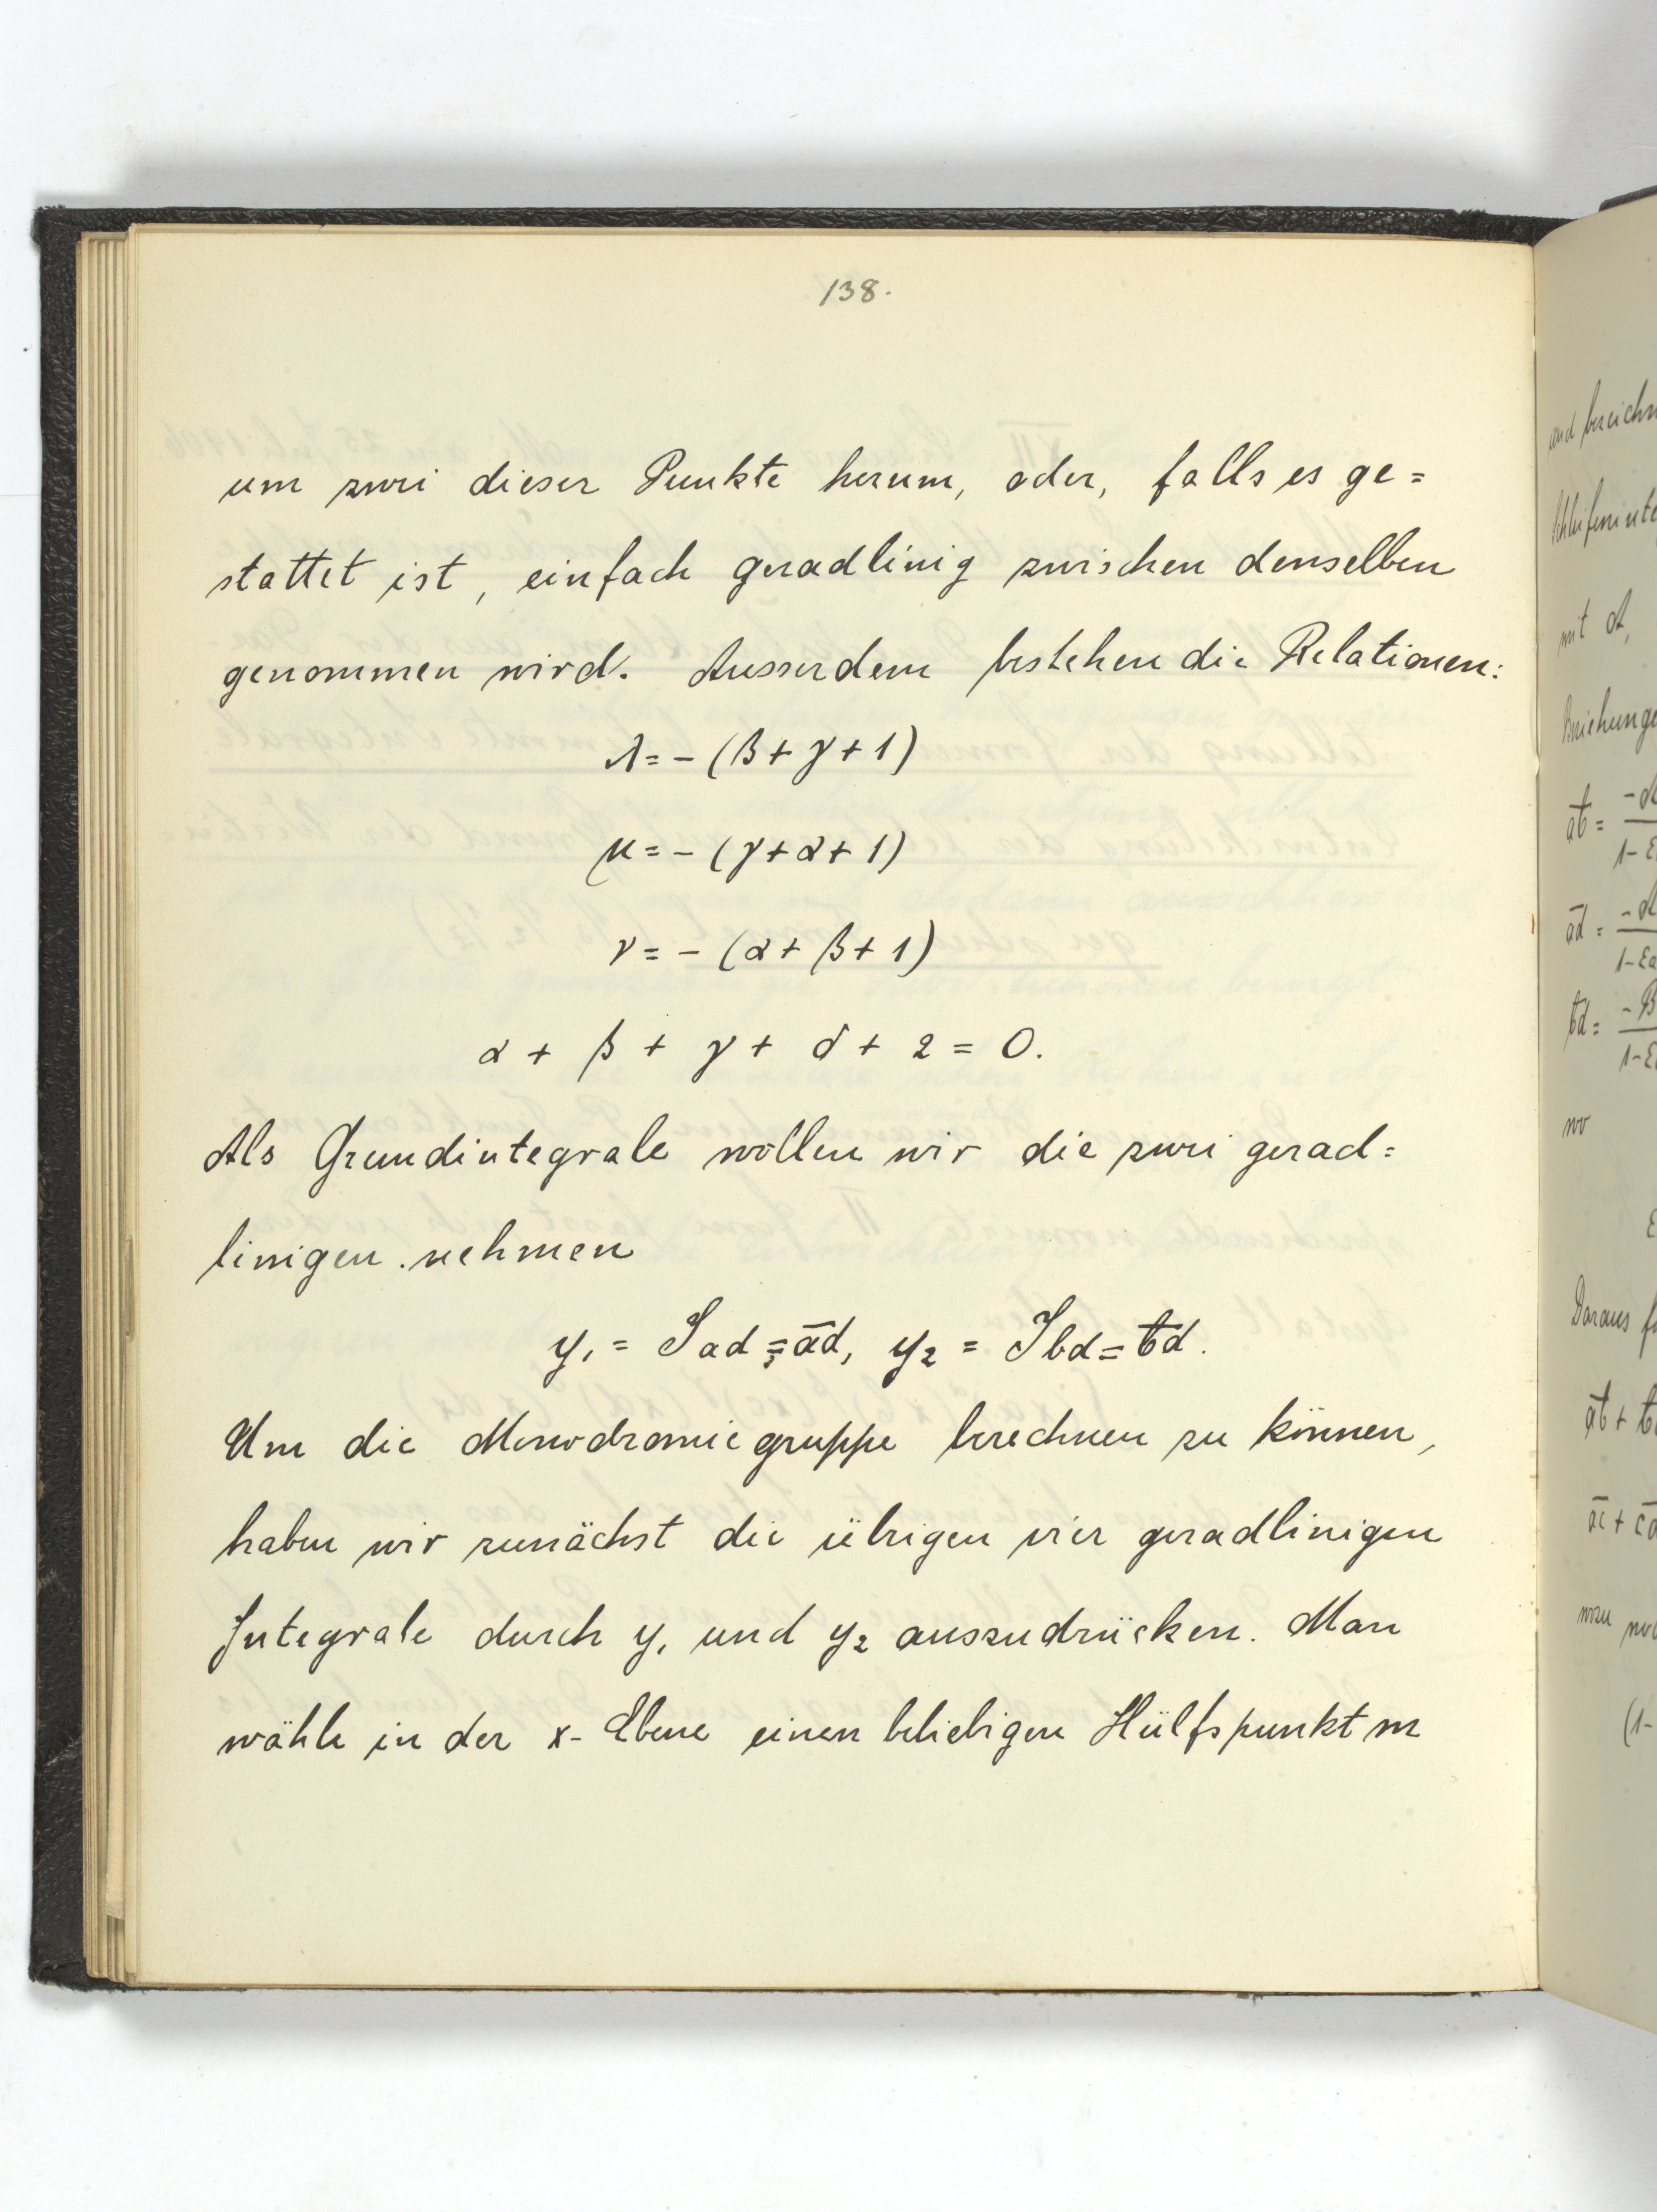 138.
um zwei dieser Punkte herum, oder, falls es ge=
stattet ist, einfach geradlinig zwischen denselben
genommen wird. Ausserdem bestehen die Relationen:
λ = - (β + γ + 1)
μ = - (γ + α + 1)
ν = - (α + β + 1)
α + β + γ + δ + 2 = 0.
Als Grundintegrale wollen wir die zwei gerad=
linigen nehmen
y₁ = Jad = a̅d, y₂ = Jbd = b̅d.
Um die Monodromiegruppe berechnen zu können,
haben wir zunächst die übrigen vier geradlinigen
Integrale durch y₁ und y₂ auszudrücken. Man
wähle in der x-Ebene einen beliebigen Hülfspunkt m
mit A,
wo
Daraus